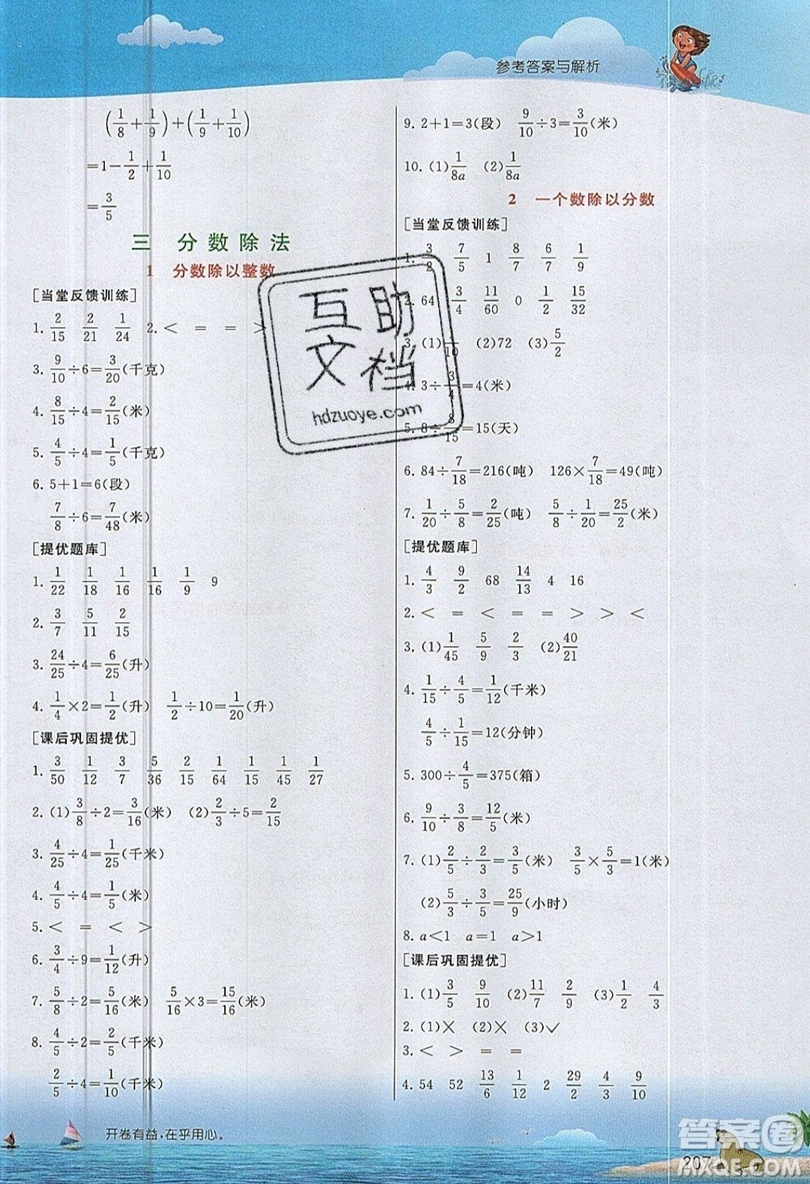 参考答案与解析
(1/8+1/9)+(1/9+1/10)
=1-1/2+1/10
=3/5
三 分数除法
1 分数除以整数
[当堂反馈训练]
1. 2/15 2/21 1/24 2. < = = >
3. 9/10÷6=3/20(千克)
4. 8/15÷4=2/15(米)
5. 4/5÷4=1/5(千克)
6. 5+1=6(段)
7/8÷6=7/48(米)
[提优题库]
1. 1/22 1/18 1/16 1/16 1/9 9
2. 3/7 5/11 2/15
3. 24/25÷4=6/25(升)
4. 1/4×2=1/2(升) 1/2÷10=1/20(升)
[课后巩固提优]
1. 3/50 1/12 3/7 5/36 2/15 1/64 1/15 1/45 1/27
2. (1)3/8÷2=3/16(米) (2)2/3÷5=2/15
3. 4/25÷4=1/25(千米)
4. 4/5÷4=1/5(米)
5. < = = < >
6. 3/4÷9=1/12(升)
7. 5/8÷2=5/16(米) 5/16×3=15/16(米)
8. 4/5÷2=2/5(千米)
4/5÷4=1/5(千米)
9. 2+1=3(段) 9/10÷3=3/10(米)
10. (1)1/8a (2)1/8a
2 一个数除以分数
[当堂反馈训练]
1. 3/2 7/5 1 8/7 6/7 1/9
2. 64 3/4 11/60 0 1/2 15/32
3. (1)1/10 (2)72 (3)5/2
4. 3÷3/4=4(米)
5. 8÷8/15=15(天)
6. 84÷7/18=216(吨) 126×7/18=49(吨)
7. 1/20÷5/8=2/25(吨) 5/8÷1/20=25/2(米)
[提优题库]
1. 4/3 9/2 68 14/13 4 16
2. < = < = = > > <
3. (1)1/45 5/9 2/3 (2)40/21
4. 1/15÷4/5=1/12(千米)
4/5÷1/15=12(分钟)
5. 300÷4/5=375(箱)
6. 9/10÷3/8=12/5(米)
7. (1)2/5÷2/3=3/5(米) 3/5×5/3=1(米)
(2)5/3÷3/5=25/9(小时)
8. a<1 a=1 a>1
[课后巩固提优]
1. (1)3/5 9/10 (2)11/7 2/9 (3)1/2 4/3
2. (1)× (2)× (3)✓
3. < > = =
4. 54 52 13/6 1/12 2 29/2 4/3 9/10
互助文档
hdzuoye.com
开卷有益,在乎用心。
207
答案圈
MXQE.COM